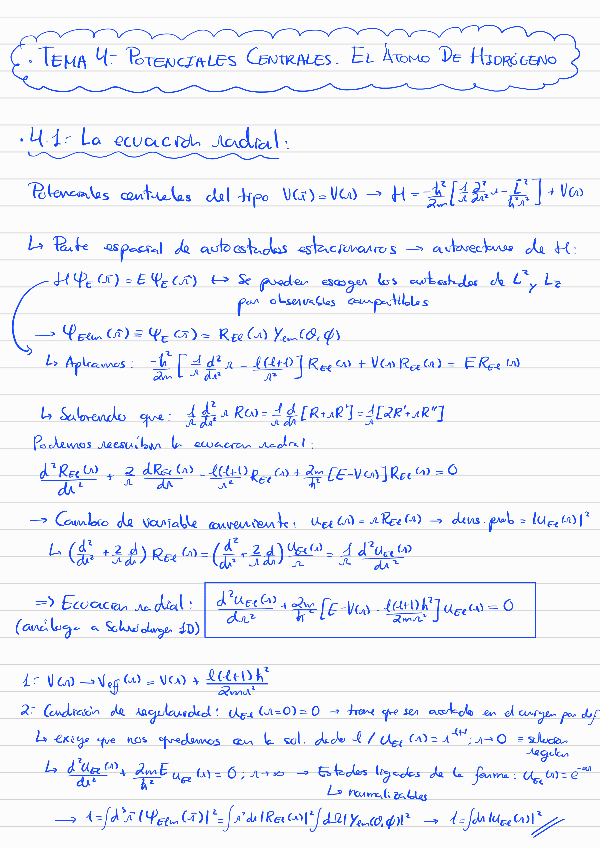 · TEMA 4.- POTENCIALES CENTRALES. EL ÁTOMO DE HIDRÓGENO
· 4.1.- La ecuación radial:
Potenciales centrales del tipo V(r̄) = V(r) → H = -ħ²/2m [1/r ∂²/∂r² r - L̄²/ħ²r²] + V(r)
↳ Parte espacial de autoestados estacionarios → autovectores de H:
Hψ_E(r̄) = Eψ_E(r̄) ↔ Se pueden escoger los autoestados de L² y Lz
por observables compatibles
→ ψ_Elm(r̄) ≡ ψ_E(r̄) = R_El(r) Y_lm(θ,ϕ)
↳ Aplicamos: -ħ²/2m [1/r d²/dr² r - l(l+1)/r²] R_El(r) + V(r) R_El(r) = E R_El(r)
↳ Sabiendo que: 1/r d²/dr² r R(r) = 1/r d/dr [R + rR'] = 1/r [2R' + rR'']
Podemos reescribir la ecuación radial:
d²R_El(r)/dr² + 2/r dR_El(r)/dr - l(l+1)/r² R_El(r) + 2m/ħ² [E - V(r)] R_El(r) = 0
→ Cambio de variable conveniente: u_El(r) = r R_El(r) → dens. prob = |u_El(r)|²
↳ (d²/dr² + 2/r d/dr) R_El(r) = (d²/dr² + 2/r d/dr) u_El(r)/r = 1/r d²u_El(r)/dr²
⇒ Ecuación radial: d²u_El(r)/dr² + 2m/ħ² [E - V(r) - l(l+1)ħ²/2mr²] u_El(r) = 0
(análoga a Schrödinger 1D)
1.- V(r) → V_eff(r) = V(r) + l(l+1)ħ²/2mr²
2.- Condición de regularidad: u_El(r=0) = 0 → tiene que ser acotado en el origen por def.
↳ exige que nos quedemos con la sol. dado l / u_El(r) = r^l+1; r→0 ≡ solución regular
↳ d²u_El(r)/dr² + 2mE/ħ² u_El(r) = 0; r→∞ → Estados ligados de la forma: u_El(r) = e^-αr
↳ normalizables
→ 1 = ∫d³r̄ |ψ_Elm(r̄)|² = ∫r²dr |R_El(r)|² ∫dΩ |Y_lm(θ,ϕ)|² → 1 = ∫dr |u_El(r)|²